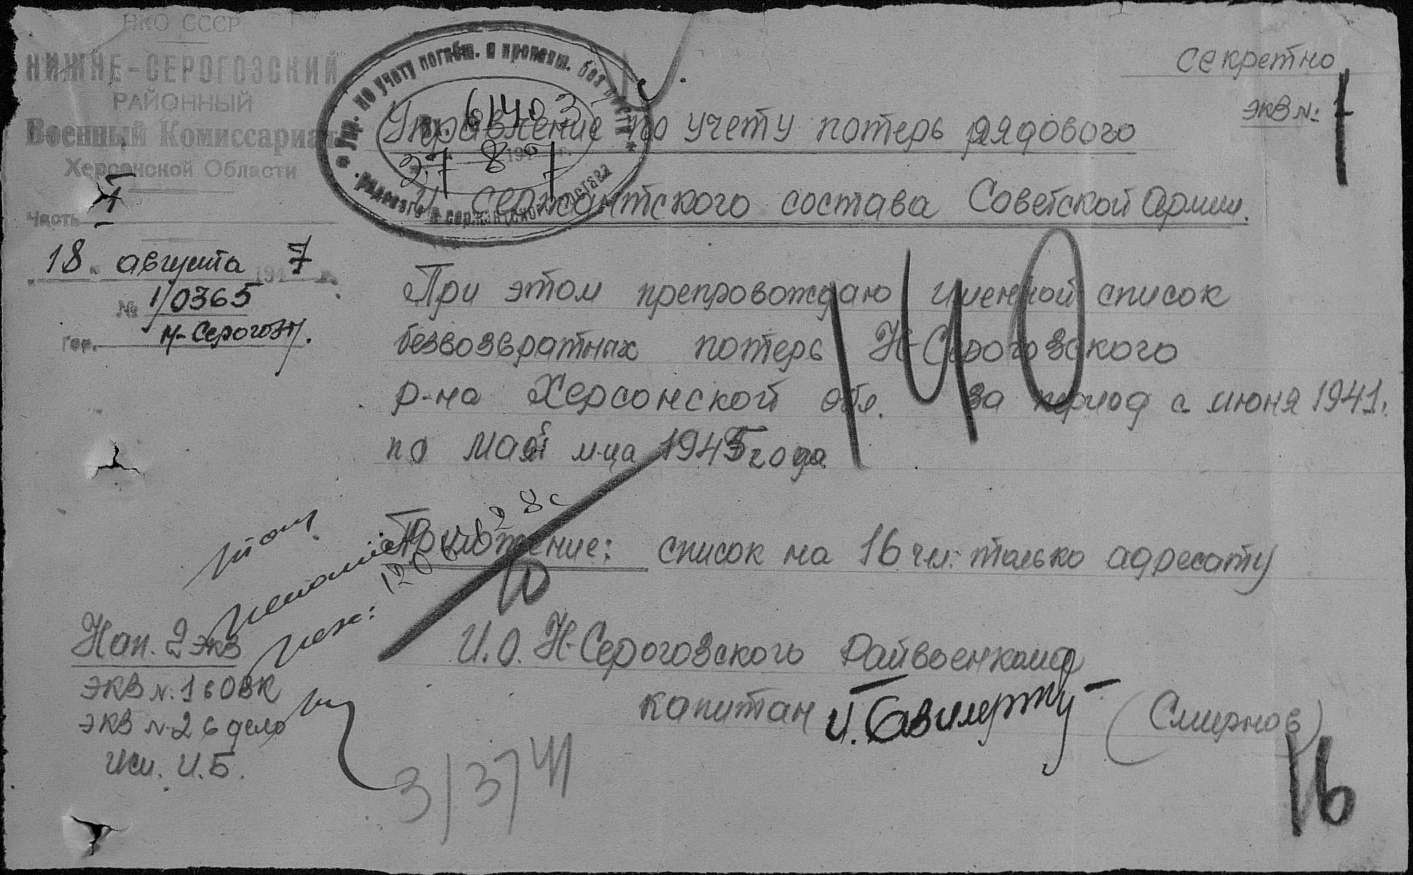 НКО СССР
НИЖНЕ-СЕРОГОЗСКИЙ
РАЙОННЫЙ
Военный Комиссариат
Херсонской Области
Часть I
18 августа 1947 г.
№ 1/0365
Гор. Н-Серогозы.
Упр. по учету погибш. и пропавш. без вести
рядового и сержантского состава
61403
27 8 1947 г.
секретно
экз №: 1
Управление по учету потерь рядового
и сержантского состава Советской Армии.
При этом препровождаю именной список
безвозвратных потерь Н-Серогозского
р-на Херсонской обл. за период с июня 1941.
по май м-ца 1945 года
140
Приложение: список на 16 чл: только адресату
10
И.О. Н-Серогозского Райвоенкома
капитан (Смирнов)
Нап. 2 экз
экз №: 1 в ОВК
экз № 2 в дело
Исп. И.Б.
3/3741
16